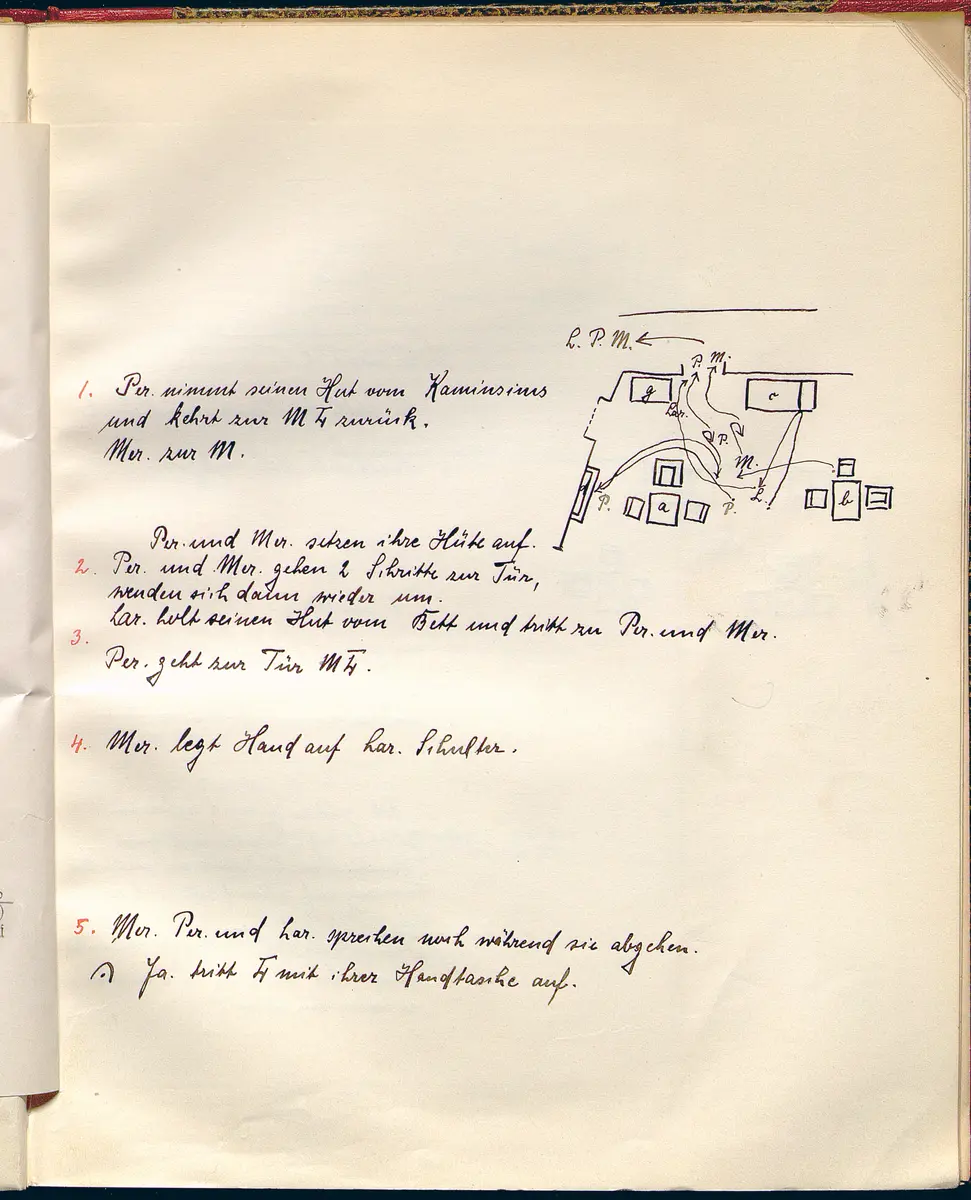 L. P. M.
P. M.
g
c
Lar.
P.
M.
P.
a
P.
L.
b
1. Per. nimmt seinen Hut vom Kaminsims
und kehrt zur M zurück.
Mer. zur M.
Per. und Mer. setzen ihre Hüte auf.
2. Per. und Mer. gehen 2 Schritte zur Tür,
wenden sich dann wieder um.
Lar. holt seinen Hut vom Bett und tritt zu Per. und Mer.
3.
Per. geht zur Tür M.
4. Mer. legt Hand auf Lar. Schulter.
5. Mer. Per. und Lar. sprechen noch während sie abgehen.
Ja. tritt mit ihrer Handtasche auf.